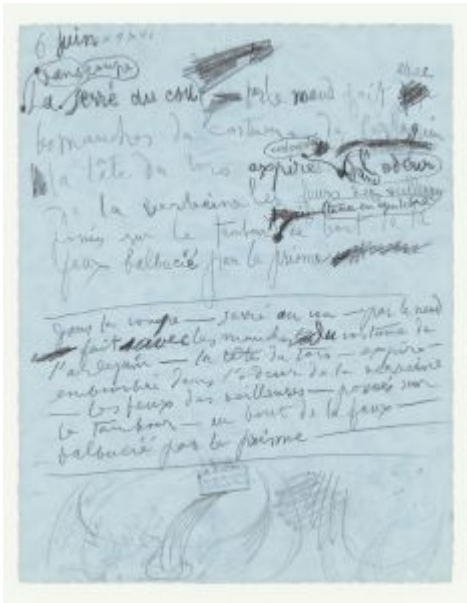 6 juin
dans coupe
la serré du cou — par le nœud fait avec
les manches du costume de l'arlequin
la tête du toro expire l'odeur
de la verveine les feux des veilleuses
posés sur le tambour au bout de la
faux balbucié par le prisme
dans la coupe — serré au cou — par le nœud
— fait avec les manches du costume de
l'arlequin — la tête du toro — expire —
dans l'odeur de la verveine
— les feux des veilleuses — posées sur
le tambour — au bout de la faux —
balbucié par le prisme —